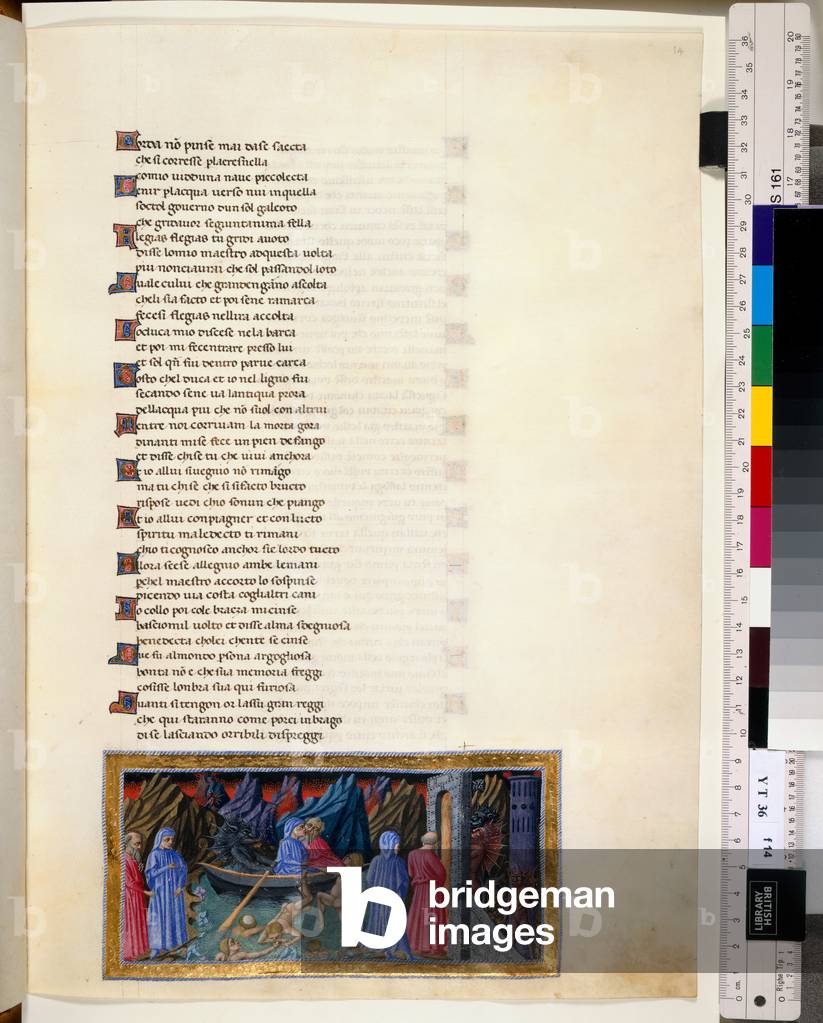 14
Corda nō pinse mai dase saecta
che si coresse placresnella
comio uidduna naue piccolecta
enir placqua uerso nui inquella
soctol gouerno dun sol galeoto
che gridauor segiuntanima fella
legias flegias tu gridi auoto
disse lomio maestro adquesta uolta
piu nonciaurai che sol passandol loto
uale cului che grandengāno ascolta
cheli sia facto et poi sene ramarca
fecesi flegias nellira accolta
oduca mio discese nela barca
et poi mi fecentrare presso lui
et sol qn̄ fui dentro parue carca
osto chel duca et io nel ligno fui
secando sene ua lantiqua prora
dellacqua piu che nō suol con altrui
entre noi corriuam la morta gora
dinanti mi se fece un pien de fango
et disse chi se tu che uiui anchora
t io allui siuegnio nō rimāgo
ma tu chi se che si si facto bructo
rispose uedi chio sonun che piango
t io allui conpiagner et con lucto
spiritu maledecto ti rimani
chio ti cognosco anchor sie lordo tucto
llora stese allegnio ambe lemani
pchel maestro accorto lo sospinse
dicendo uia costa coglialtri cani
o collo poi cole braeza mi cinse
basciomil uolto et disse alma sdegniosa
benedecta cholei chente se cinse
ue fu almondo psona argogliosa
bonta nō e che sua memoria freggi
cosisse lonbra sua qui furiosa
uanti si tengon or lassu gran reggi
che qui staranno come porci inbrago
di se lasciando orribili dispreggi
S 161
Y T 36 f 14
BRITISH
LIBRARY
cm.
b bridgeman
images